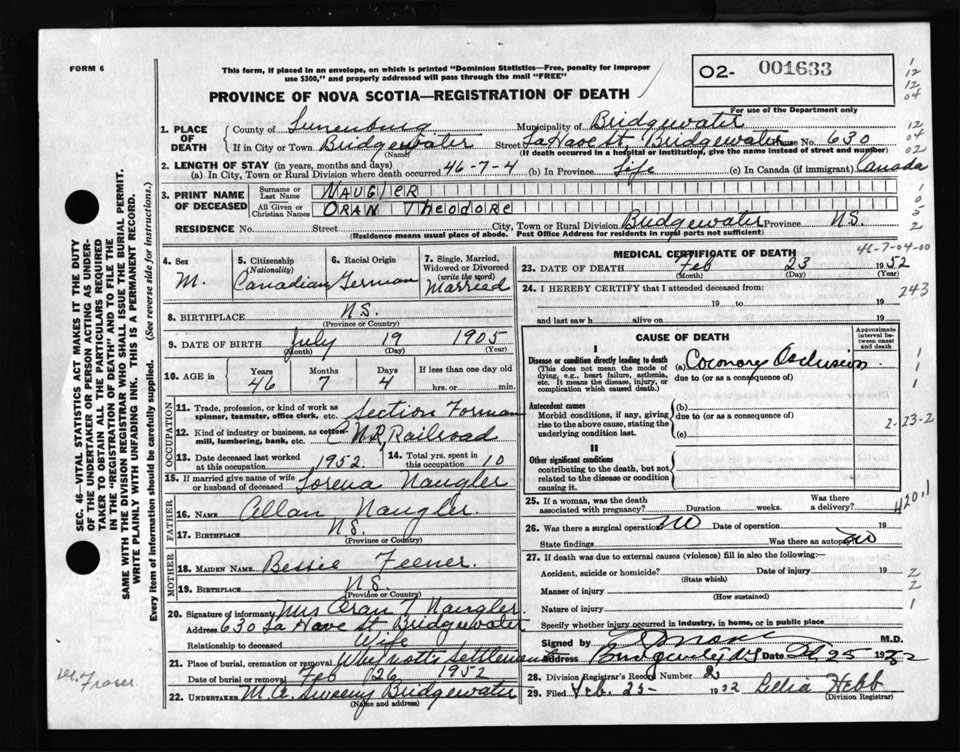 FORM 6
This form, if placed in an envelope, on which is printed "Dominion Statistics—Free, penalty for improper
use $300," and properly addressed will pass through the mail "FREE"
O2- 001633
PROVINCE OF NOVA SCOTIA—REGISTRATION OF DEATH
For use of the Department only
1
12
12
04
12
04
02
1. PLACE OF DEATH
County of Lunenburg Municipality of Bridgewater
If in City or Town Bridgewater Street LaHave St, Bridgewater House No. 630
(Name) (If death occurred in a hospital or institution, give the name instead of street and number)
2. LENGTH OF STAY (in years, months and days)
(a) In City, Town or Rural Division where death occurred 46-7-4 (b) In Province Life (c) In Canada (if immigrant) Canada
3. PRINT NAME OF DECEASED
Surname or Last Name NAUGLER
All Given or Christian Names ORAN Theodore
RESIDENCE No. Street City, Town or Rural Division Bridgewater Province N.S.
(Residence means usual place of abode. Post Office Address for residents in rural parts not sufficient)
4. Sex M.
5. Citizenship (Nationality) Canadian
6. Racial Origin German
7. Single, Married, Widowed or Divorced (write the word) Married
8. BIRTHPLACE N.S.
(Province or Country)
9. DATE OF BIRTH July 19 1905
(Month) (Day) (Year)
10. AGE in Years 46 Months 7 Days 4 If less than one day
hrs. or min.
OCCUPATION
11. Trade, profession, or kind of work as spinner, teamster, office clerk, etc. Section Forman
12. Kind of industry or business, as cotton-mill, lumbering, bank, etc. C N.R. Railroad
13. Date deceased last worked at this occupation 1952.
14. Total yrs. spent in this occupation 10
15. If married give name of wife or husband of deceased Lorena Naugler
FATHER
16. NAME Allan Naugler
17. BIRTHPLACE N.S.
(Province or Country)
MOTHER
18. MAIDEN NAME Bessie Feener.
19. BIRTHPLACE N.S.
(Province or Country)
20. Signature of informant Mrs Oran T Naugler.
Address 630 La Have St Bridgewater
Relationship to deceased Wife
21. Place of burial, cremation or removal Settlement
Date of burial or removal Feb 26 1952
22. UNDERTAKER M.A. Sweeny Bridgewater
(Name and address)
MEDICAL CERTIFICATE OF DEATH
46-7-04-00
23. DATE OF DEATH Feb 23 1952
(Month) (Day)
24. I HEREBY CERTIFY that I attended deceased from:
243
19 to 19
and last saw h alive on 19
CAUSE OF DEATH
Approximate interval between onset and death
I
Disease or condition directly leading to death
(This does not mean the mode of dying, e.g., heart failure, asthenia, etc. It means the disease, injury, or complication which caused death.)
(a) Coronary Occlusion
due to (or as a consequence of)
Antecedent causes
Morbid conditions, if any, giving rise to the above cause, stating the underlying condition last.
(b)
due to (or as a consequence of)
(c)
2-23-2
II
Other significant conditions
contributing to the death, but not related to the disease or condition causing it.
25. If a woman, was the death associated with pregnancy? Duration weeks. Was there a delivery?
4201
26. Was there a surgical operation? no Date of operation 19
State findings Was there an autopsy? no
27. If death was due to external causes (violence) fill in also the following:—
Accident, suicide or homicide? Date of injury 19
(State which)
Manner of injury
(How sustained)
Nature of injury
Specify whether injury occurred in industry, in home, or in public place
Signed by M.D.
Address Bridgewater N.S Date Feb 25 1952
28. Division Registrar's Record Number 2
29. Filed Feb. 25- 1952 Delia Hebb
(Division Registrar)
SEC. 46—VITAL STATISTICS ACT MAKES IT THE DUTY
OF THE UNDERTAKER OR PERSON ACTING AS UNDER-
TAKER TO OBTAIN ALL THE PARTICULARS REQUIRED
IN THE "REGISTRATION OF DEATH" AND TO FILE THE
SAME WITH THE DIVISION REGISTRAR WHO SHALL ISSUE THE BURIAL PERMIT.
WRITE PLAINLY WITH UNFADING INK. THIS IS A PERMANENT RECORD.
Every item of information should be carefully supplied. (See reverse side for instructions.)
Fraser